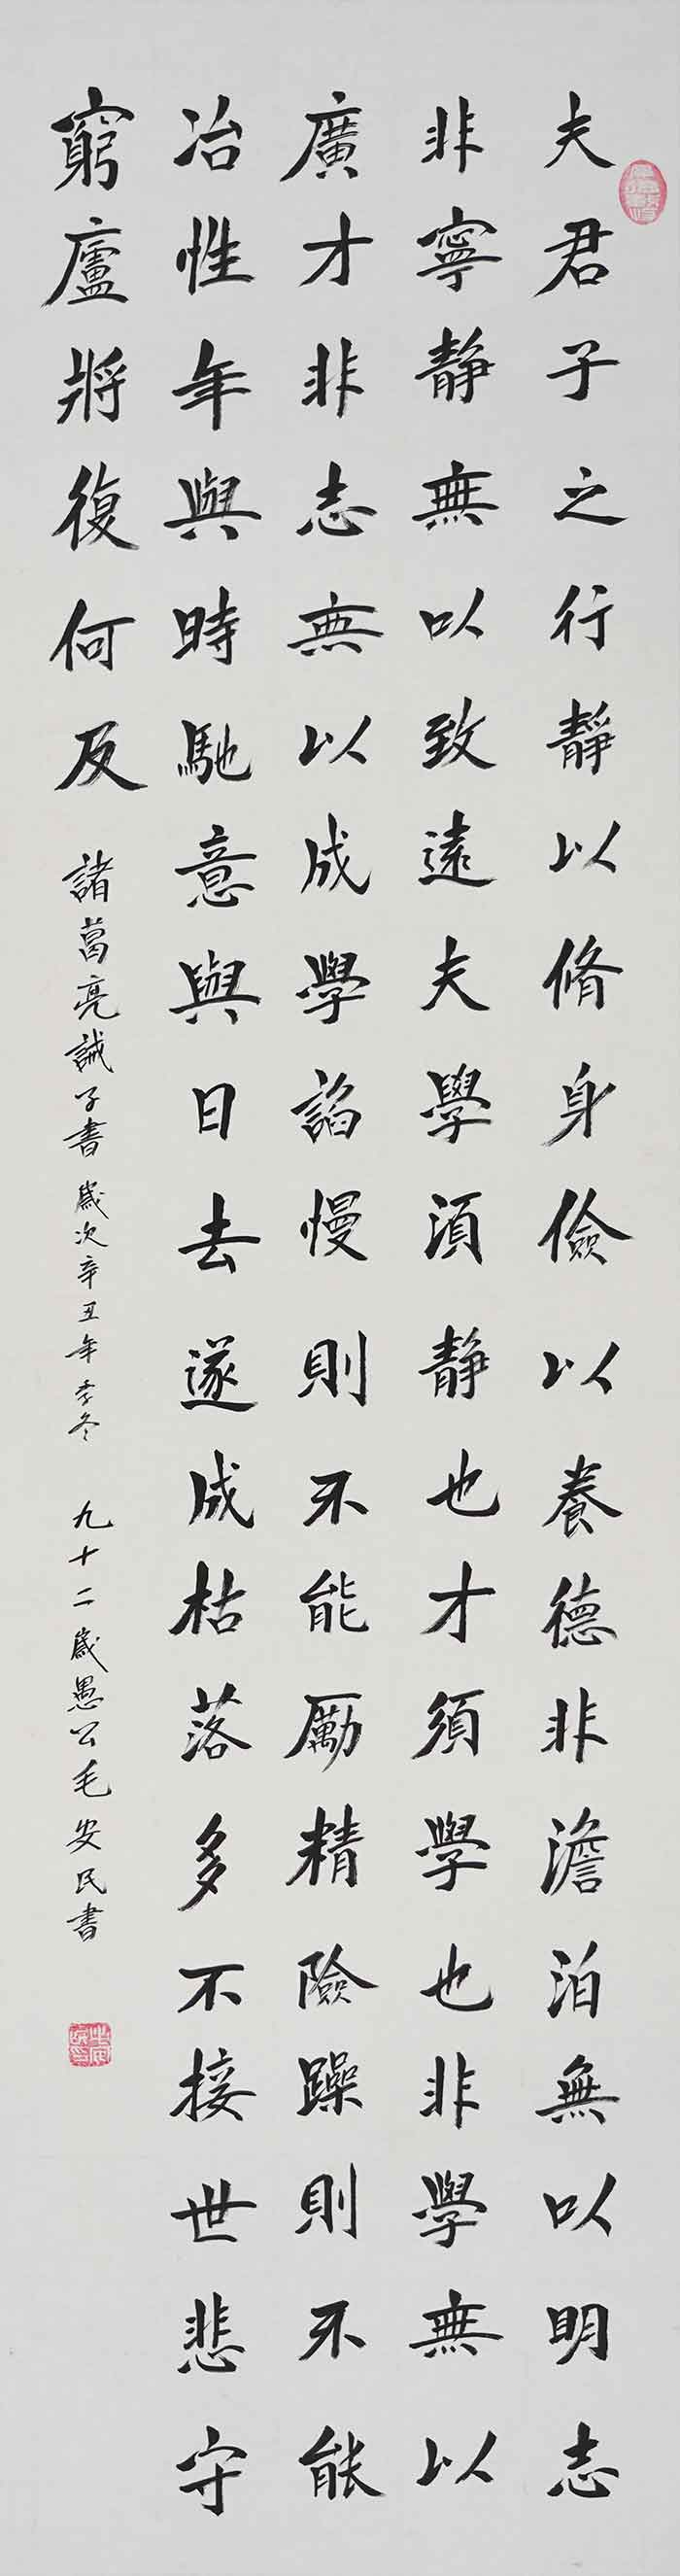 夫君子之行靜以脩身儉以養德非澹泊無以明志
非寧静無以致遠夫學須静也才須學也非學無以
廣才非志無以成學諂慢則不能励精險躁則不能
冶性年與時馳意與日去遂成枯落多不接世悲守
窮廬將復何及 諸葛亮誡子書 歲次辛丑年季冬 九十二歲愚公毛安民書